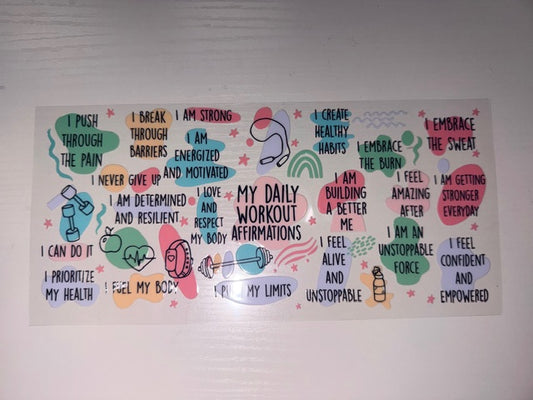 I PUSH
THROUGH
THE PAIN
I BREAK
THROUGH
BARRIERS
I AM STRONG
I AM
ENERGIZED
AND MOTIVATED
I CREATE
HEALTHY
HABITS
I EMBRACE
THE BURN
I EMBRACE
THE SWEAT
I NEVER GIVE UP
I AM DETERMINED
AND RESILIENT
I LOVE
AND
RESPECT
MY BODY
MY DAILY
WORKOUT
AFFIRMATIONS
I AM
BUILDING
A BETTER
ME
I FEEL
AMAZING
AFTER
I AM GETTING
STRONGER
EVERYDAY
I CAN DO IT
I PRIORITIZE
MY HEALTH
I FUEL MY BODY
I PUSH MY LIMITS
I FEEL
ALIVE
AND
UNSTOPPABLE
I AM AN
UNSTOPPABLE
FORCE
I FEEL
CONFIDENT
AND
EMPOWERED